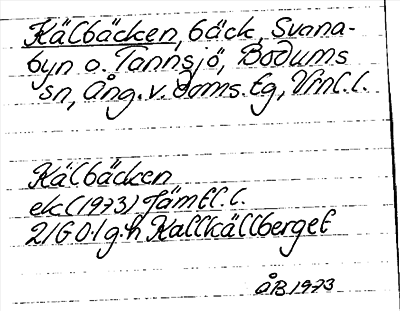 Kälbäcken, bäck, Svana-
byn o. Tannsjö, Bodums
sn, Ång. v. doms. tg, Vrnl. l.
Kälbäcken
ek (1973) Jämtl. l.
21G 0 l g.h Kallkällberget
ÅB 1973